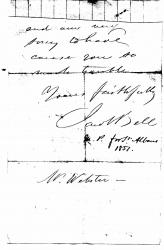 and am very
sorry to have
cause you so
much trouble
Yours faithfully
Jacob Bell
M.P. for St Albans
1851.
Mr Webster —